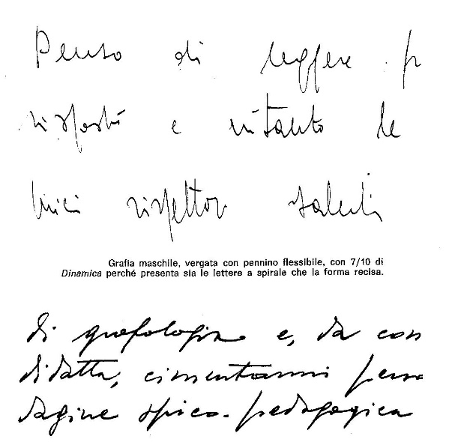 Penso di leggere p
risposti e intanto le
miei rispettosi saluti
Grafia maschile, vergata con pennino flessibile, con 7/10 di
Dinamica perché presenta sia le lettere a spirale che la forma recisa.
di grafologia e, da con
didatta, cimentarmi
dagine psico-pedagogica